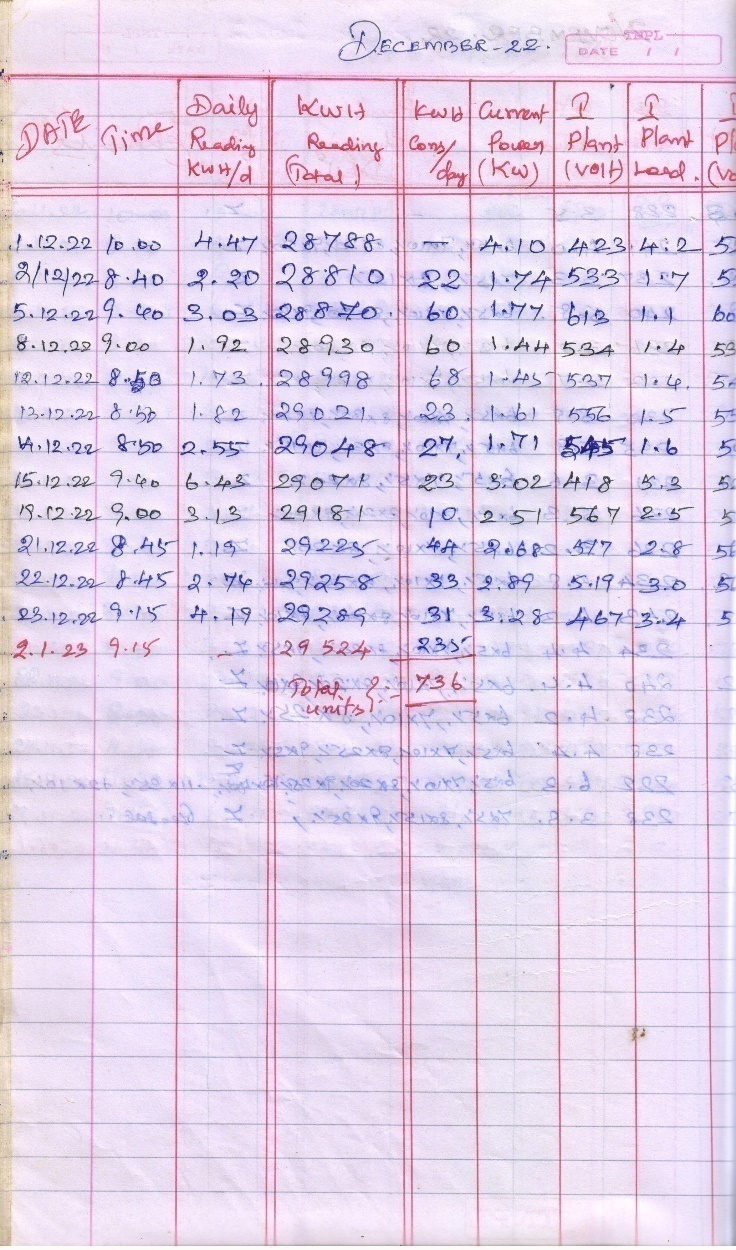 DECEMBER-22.
TNPL
DATE / /
DATE Time Daily Reading KWH/d KWH Reading (Total) KWH Cons/day Current Power (KW) I Plant (volt) I Plant Load.
1.12.22 10.00 4.47 28788 — 4.10 423 4.2
2/12/22 8.40 2.20 28810 22 1.74 533 1.7
5.12.22 9.40 3.03 28870. 60 1.77 613 1.1
8.12.22 9.00 1.92 28930 60 1.44 534 1.4
12.12.22 8.50 1.73. 28998 68 1.45 537 1.4.
13.12.22 8.50 1.82 29021 23. 1.61 556 1.5
14.12.22 8.50 2.55 29048 27, 1.71 545 1.6
15.12.22 9.40 6.43 29071 23 5.02 418 5.3
19.12.22 9.00 3.13 29181 10, 2.51 567 2.5
21.12.22 8.45 1.19 29225 44 2.68 .517 2.8
22.12.22 8.45 2.74 29258 33 2.89 5.19 3.0
23.12.22 9.15 4.19 29289 31 3.28 467 3.4
2.1.23 9.15 – 29524 235
Total units } :- 736